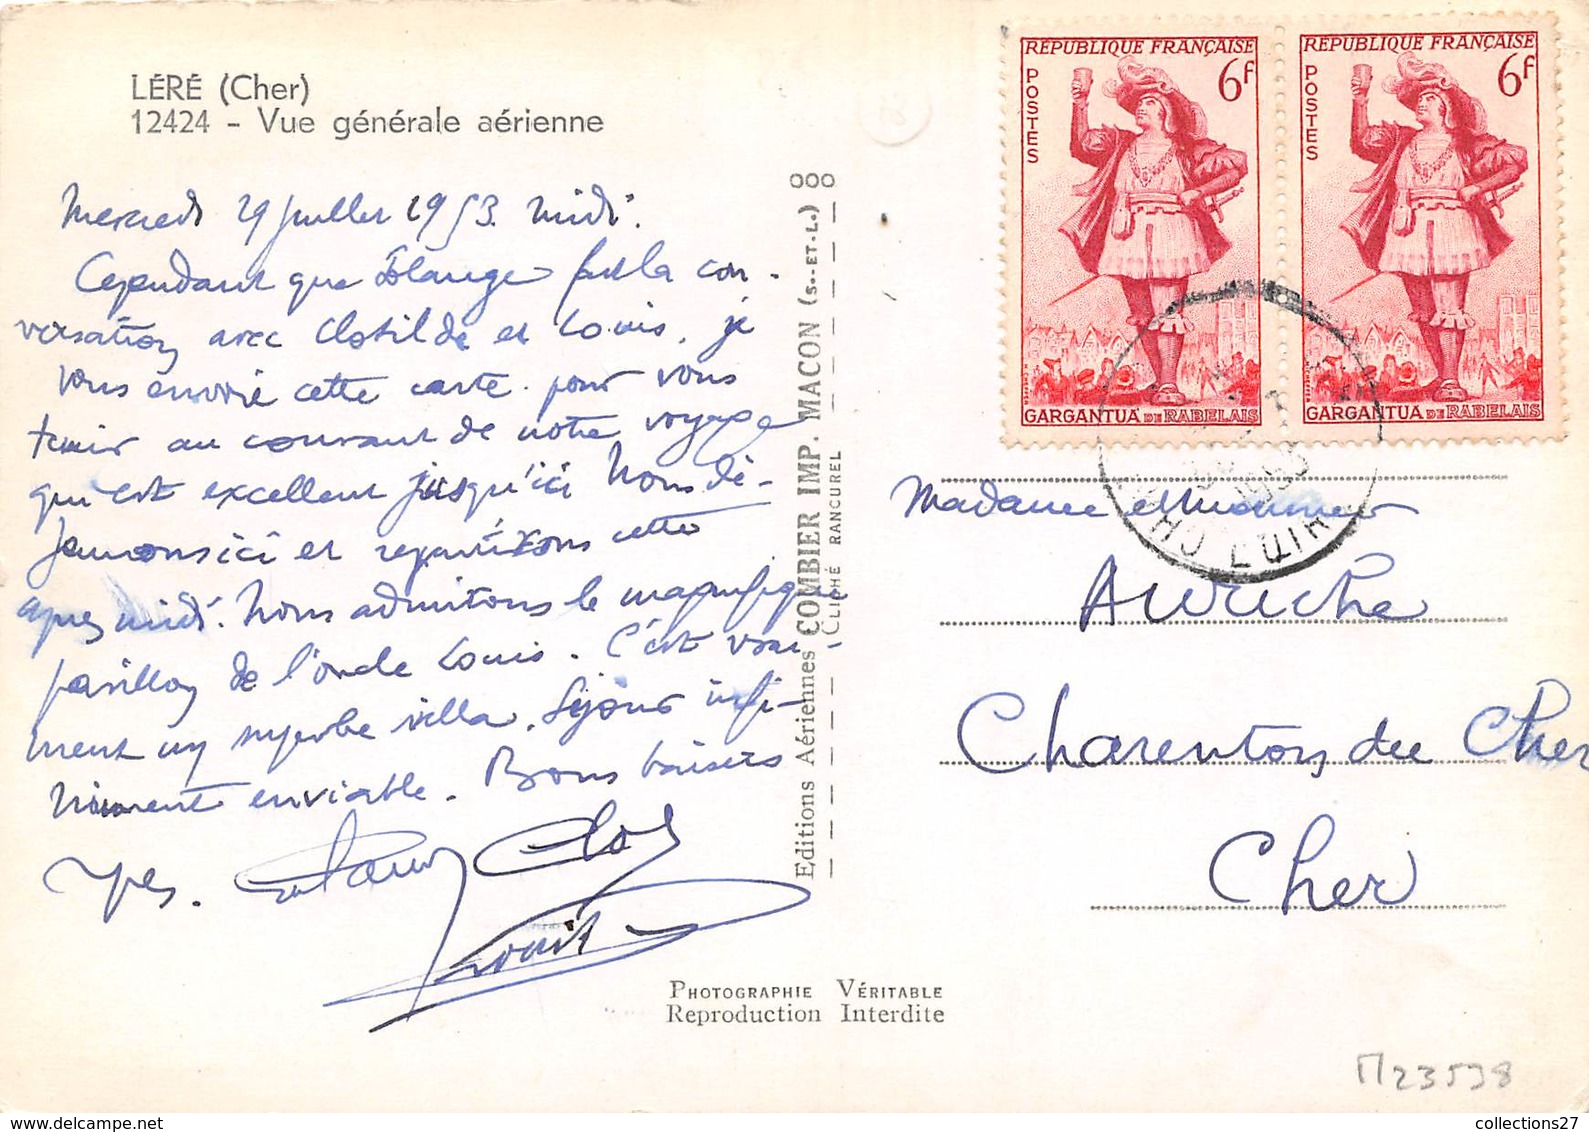 LÉRÉ (Cher)
12424 - Vue générale aérienne
Mercredi 29 juillet 1953. midi.
Cependant que Solange fait la con-
versation avec Clotilde et Louis, je
vous envoie cette carte pour vous
tenir au courant de notre voyage
qui est excellent jusqu'ici Nous dé-
jeunons ici et repartirons cette
après midi. Nous admirons le magnifique
pavillon de l'oncle Louis. C'est vrai-
ment un superbe villa. Séjour infi-
niment enviable. Bons baisers
Clos
Louis
Editions Aériennes COMBIER IMP. MACON (S.-ET-L.)
CLICHÉ RANCUREL
PHOTOGRAPHIE VÉRITABLE
Reproduction Interdite
RÉPUBLIQUE FRANÇAISE
6F
POSTES
GARGANTUA DE RABELAIS
RÉPUBLIQUE FRANÇAISE
6F
POSTES
GARGANTUA DE RABELAIS
1953
Madame et Monsieur
Auruche
Charenton du Cher
Cher
M23538
www.collections27